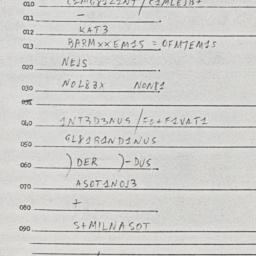 010
011 –
012 KAT3
013 BARMXXEM1S = OFM7EM1S
020 NE1S
030 NOL83X NON81
031
040 1NT3D3NUS /F0+F1VAT1
050 GL81R1ND1NUS
060 ) DER )-DUS
070 ASOT1N0J3
080 +
090 S+MILNASOT